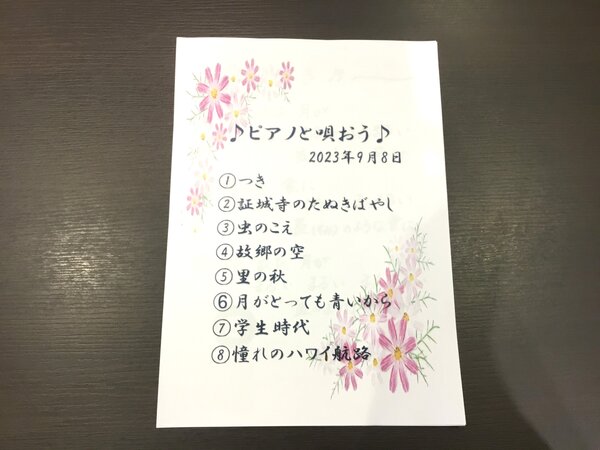 ♪ピアノと唄おう♪
2023年9月8日
①つき
②証城寺のたぬきばやし
③虫のこえ
④故郷の空
⑤里の秋
⑥月がとっても青いから
⑦学生時代
⑧憧れのハワイ航路